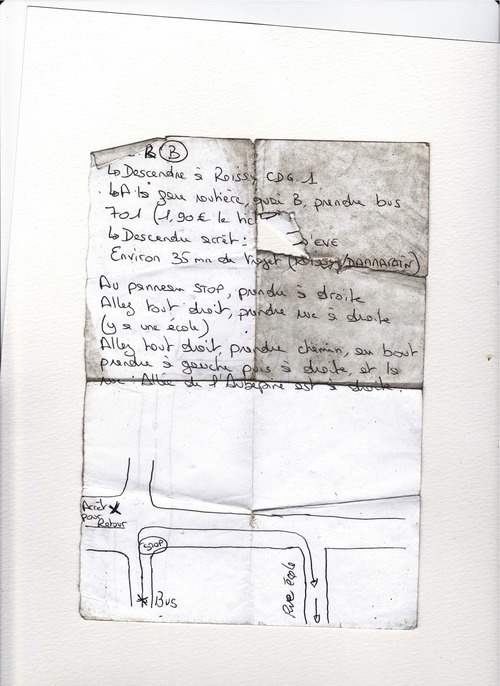 B (B)
↳ Descendre à Roissy CDG. 1
↳ A la gare routière, quai B, prendre bus
701 (1,90 € le tic
↳ Descendre arrêt: EVE
Environ 35 mn de trajet (ROISSY/DAMMARTIN)
Au panneau STOP, prendre à droite
Allez tout droit, prendre rue à droite
(y a une école)
Allez tout droit, prendre chemin, au bout
prendre à gauche puis à droite, et la
rue Allée de l'Aubépine est à droite.
Arrêt
pour
Retour
STOP
Bus
Rue école